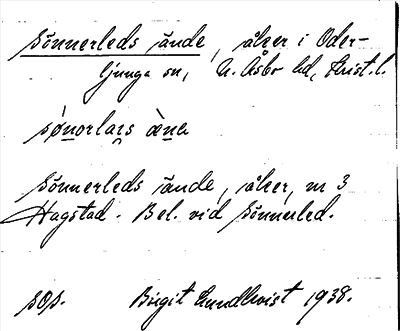 Sönnerleds ände, åker i Oder-
ljunga sn, N. Åsbo hd, Krist. l.
sønorlars æna
Sönnerleds ände, åker, m 3
Hagstad. Bel. vid Sönnerled.
sop. Birgit Lundkvist 1938.